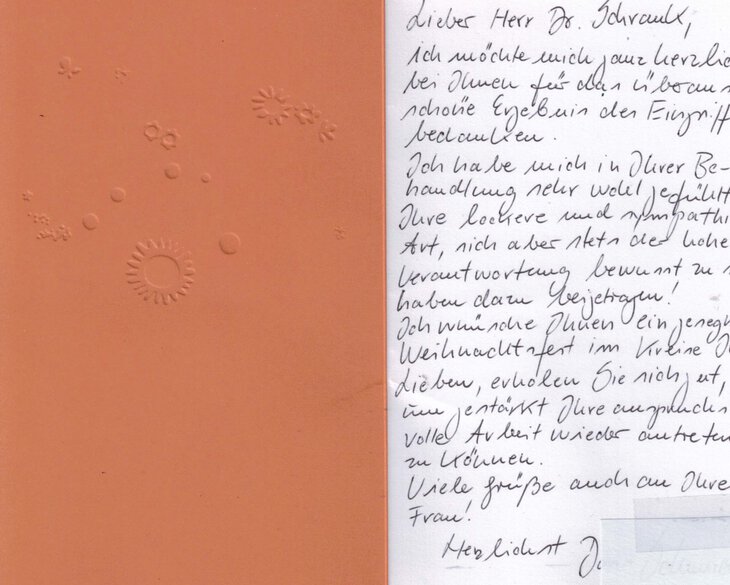 Lieber Herr Dr. Schrank,
ich möchte mich ganz herzlic
bei Ihnen für das überaus
schöne Ergebnis des Eingriff
bedanken.
Ich habe mich in Ihrer Be-
handlung sehr wohl gefühlt
Ihre lockere und sympathi
Art, sich aber stets der hohe
Verantwortung bewusst zu s
haben dazu beigetragen!
Ich wünsche Ihnen ein gesegn
Weihnachtsfest im Kreise I
Lieben, erholen Sie sich gut,
um gestärkt Ihre anspruchs
volle Arbeit wieder antreten
zu können.
Viele Grüße auch an Ihre
Frau!
Herzlichst